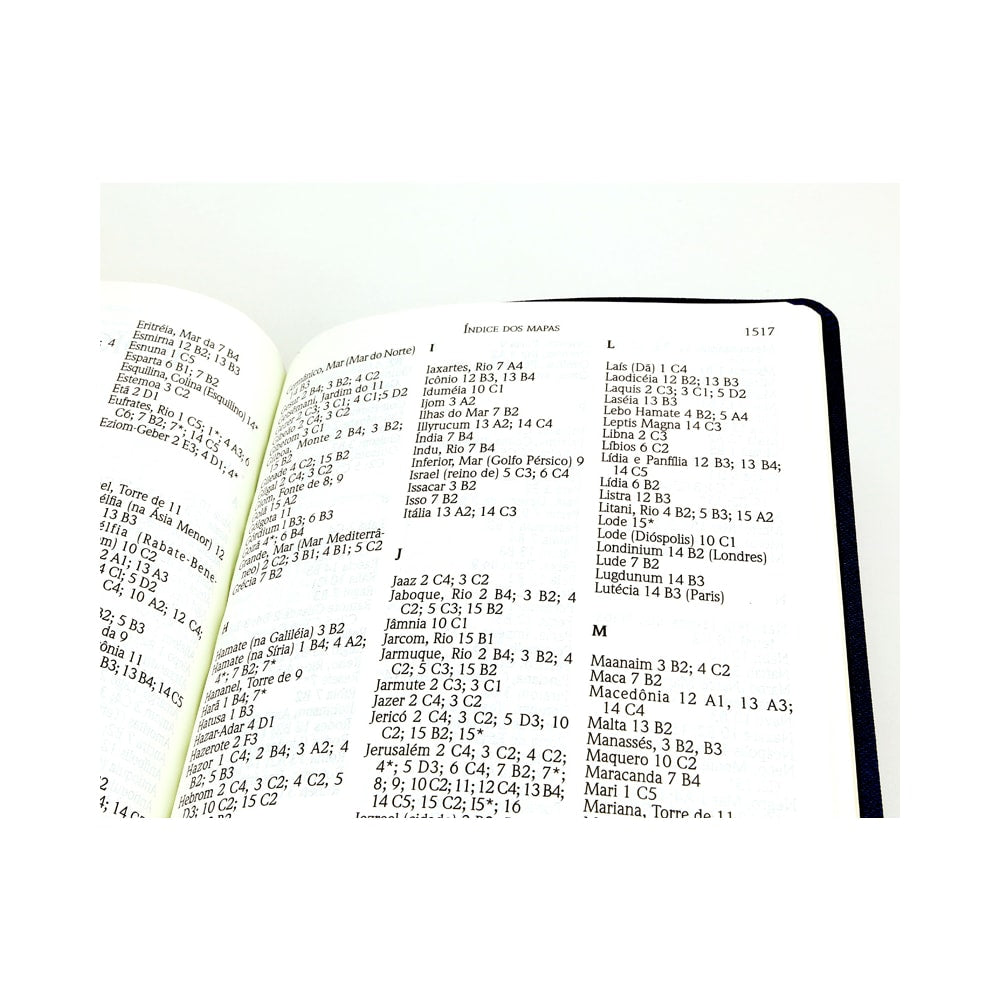 4
Eritréia, Mar da 7 B4
Esmirna 12 B2; 13 B3
Esnuna 1 C5
Esparta 6 B1; 7 B2
Esquilina, Colina (Esquilino) 14*
Estemoa 3 C2
Etã 2 D1
Eufrates, Rio 1 C5; 1*; 4 A3; 6
C6; 7 B2; 7*; 14 C5
Eziom-Geber 2 E3; 4 D1; 4*
el, Torre de 11
élfia (na Ásia Menor) 12
13 B3
élfia (Rabate-Bene-
m) 10 C2
2 A1; 13 A3
4 Cl; 5 D2
C4; 10 A2; 12 C4;
B2; 5 B3
da 9
ônia 11
B3; 13 B4; 14 C5
ÍNDICE DOS MAPAS
1517
Mar (Mar do Norte)
14 B3
2 B4; 3 B2; 4 C2
Jardim do 11
2 C3; 3 C1; 4 C1;5 D2
2 C4; 3 C2
3 C1
Monte 2 B4; 3 B2;
15 B2
4 C2; 15 B2
2 C4; 3 C2
Fonte de 8; 9
15 A2
Gólgota 11
Górdium 1 B3; 6 B3
4*; 6 B4
Grande, Mar (Mar Mediterrâ-
neo) 2 C2; 3 B1; 4 B1; 5 C2
Grécia 7 B2
H
Hamate (na Galiléia) 3 B2
Hamate (na Síria) 1 B4; 4 A2;
4*; 7 B2; 7*
Hananel, Torre de 9
Harã 1 B4; 7*
Hatusa 1 B3
Hazar-Adar 4 D1
Hazerote 2 F3
Hazor 1 C4; 2 B4; 3 A2; 4
B2; 5 B3
Hebrom 2 C4, 3 C2; 4 C2, 5
D3; 10 C2; 15 C2
I
Iaxartes, Rio 7 A4
Icônio 12 B3, 13 B4
Iduméia 10 C1
Ijom 3 A2
Ilhas do Mar 7 B2
Illyrucum 13 A2; 14 C4
Índia 7 B4
Indu, Rio 7 B4
Inferior, Mar (Golfo Pérsico) 9
Israel (reino de) 5 C3; 6 C4
Issacar 3 B2
Isso 7 B2
Itália 13 A2; 14 C3
J
Jaaz 2 C4; 3 C2
Jaboque, Rio 2 B4; 3 B2; 4
C2; 5 C3; 15 B2
Jâmnia 10 C1
Jarcom, Rio 15 B1
Jarmuque, Rio 2 B4; 3 B2; 4
C2; 5 C3; 15 B2
Jarmute 2 C3; 3 C1
Jazer 2 C4; 3 C2
Jericó 2 C4; 3 C2; 5 D3; 10
C2; 15 B2; 15*
Jerusalém 2 C4; 3 C2; 4 C2;
4*; 5 D3; 6 C4; 7 B2; 7*;
8; 9; 10 C2; 11; 12 C4; 13 B4;
14 C5; 15 C2; I5*; 16
Jezreel (cidade)
L
Laís (Dã) 1 C4
Laodicéia 12 B2; 13 B3
Laquis 2 C3; 3 C1; 5 D2
Laséia 13 B3
Lebo Hamate 4 B2; 5 A4
Leptis Magna 14 C3
Libna 2 C3
Líbios 6 C2
Lídia e Panfília 12 B3; 13 B4;
14 C5
Lídia 6 B2
Listra 12 B3
Litani, Rio 4 B2; 5 B3; 15 A2
Lode 15*
Lode (Dióspolis) 10 C1
Londinium 14 B2 (Londres)
Lude 7 B2
Lugdunum 14 B3
Lutécia 14 B3 (Paris)
M
Maanaim 3 B2; 4 C2
Maca 7 B2
Macedônia 12 A1, 13 A3;
14 C4
Malta 13 B2
Manassés, 3 B2, B3
Maquero 10 C2
Maracanda 7 B4
Mari 1 C5
Mariana, Torre de 11